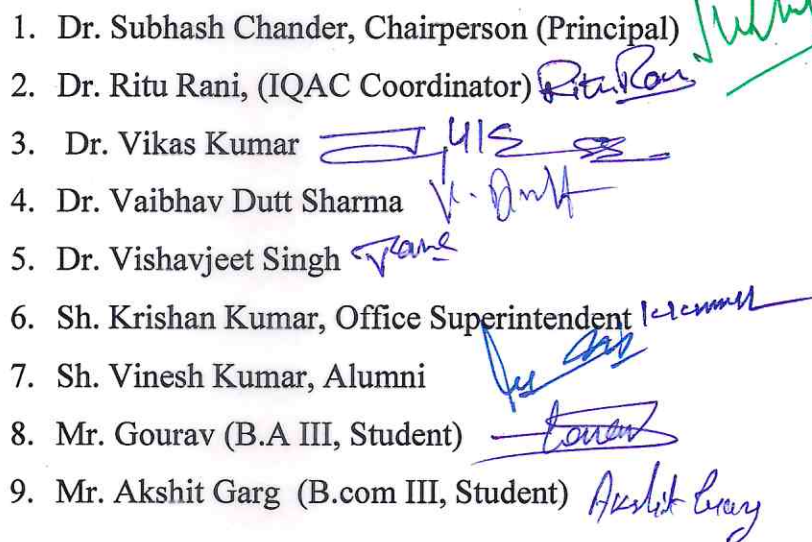 1. Dr. Subhash Chander, Chairperson (Principal)
2. Dr. Ritu Rani, (IQAC Coordinator) Ritu Rani
3. Dr. Vikas Kumar
4. Dr. Vaibhav Dutt Sharma V. Dutt
5. Dr. Vishavjeet Singh
6. Sh. Krishan Kumar, Office Superintendent
7. Sh. Vinesh Kumar, Alumni
8. Mr. Gourav (B.A III, Student)
9. Mr. Akshit Garg (B.com III, Student) Akshit Garg